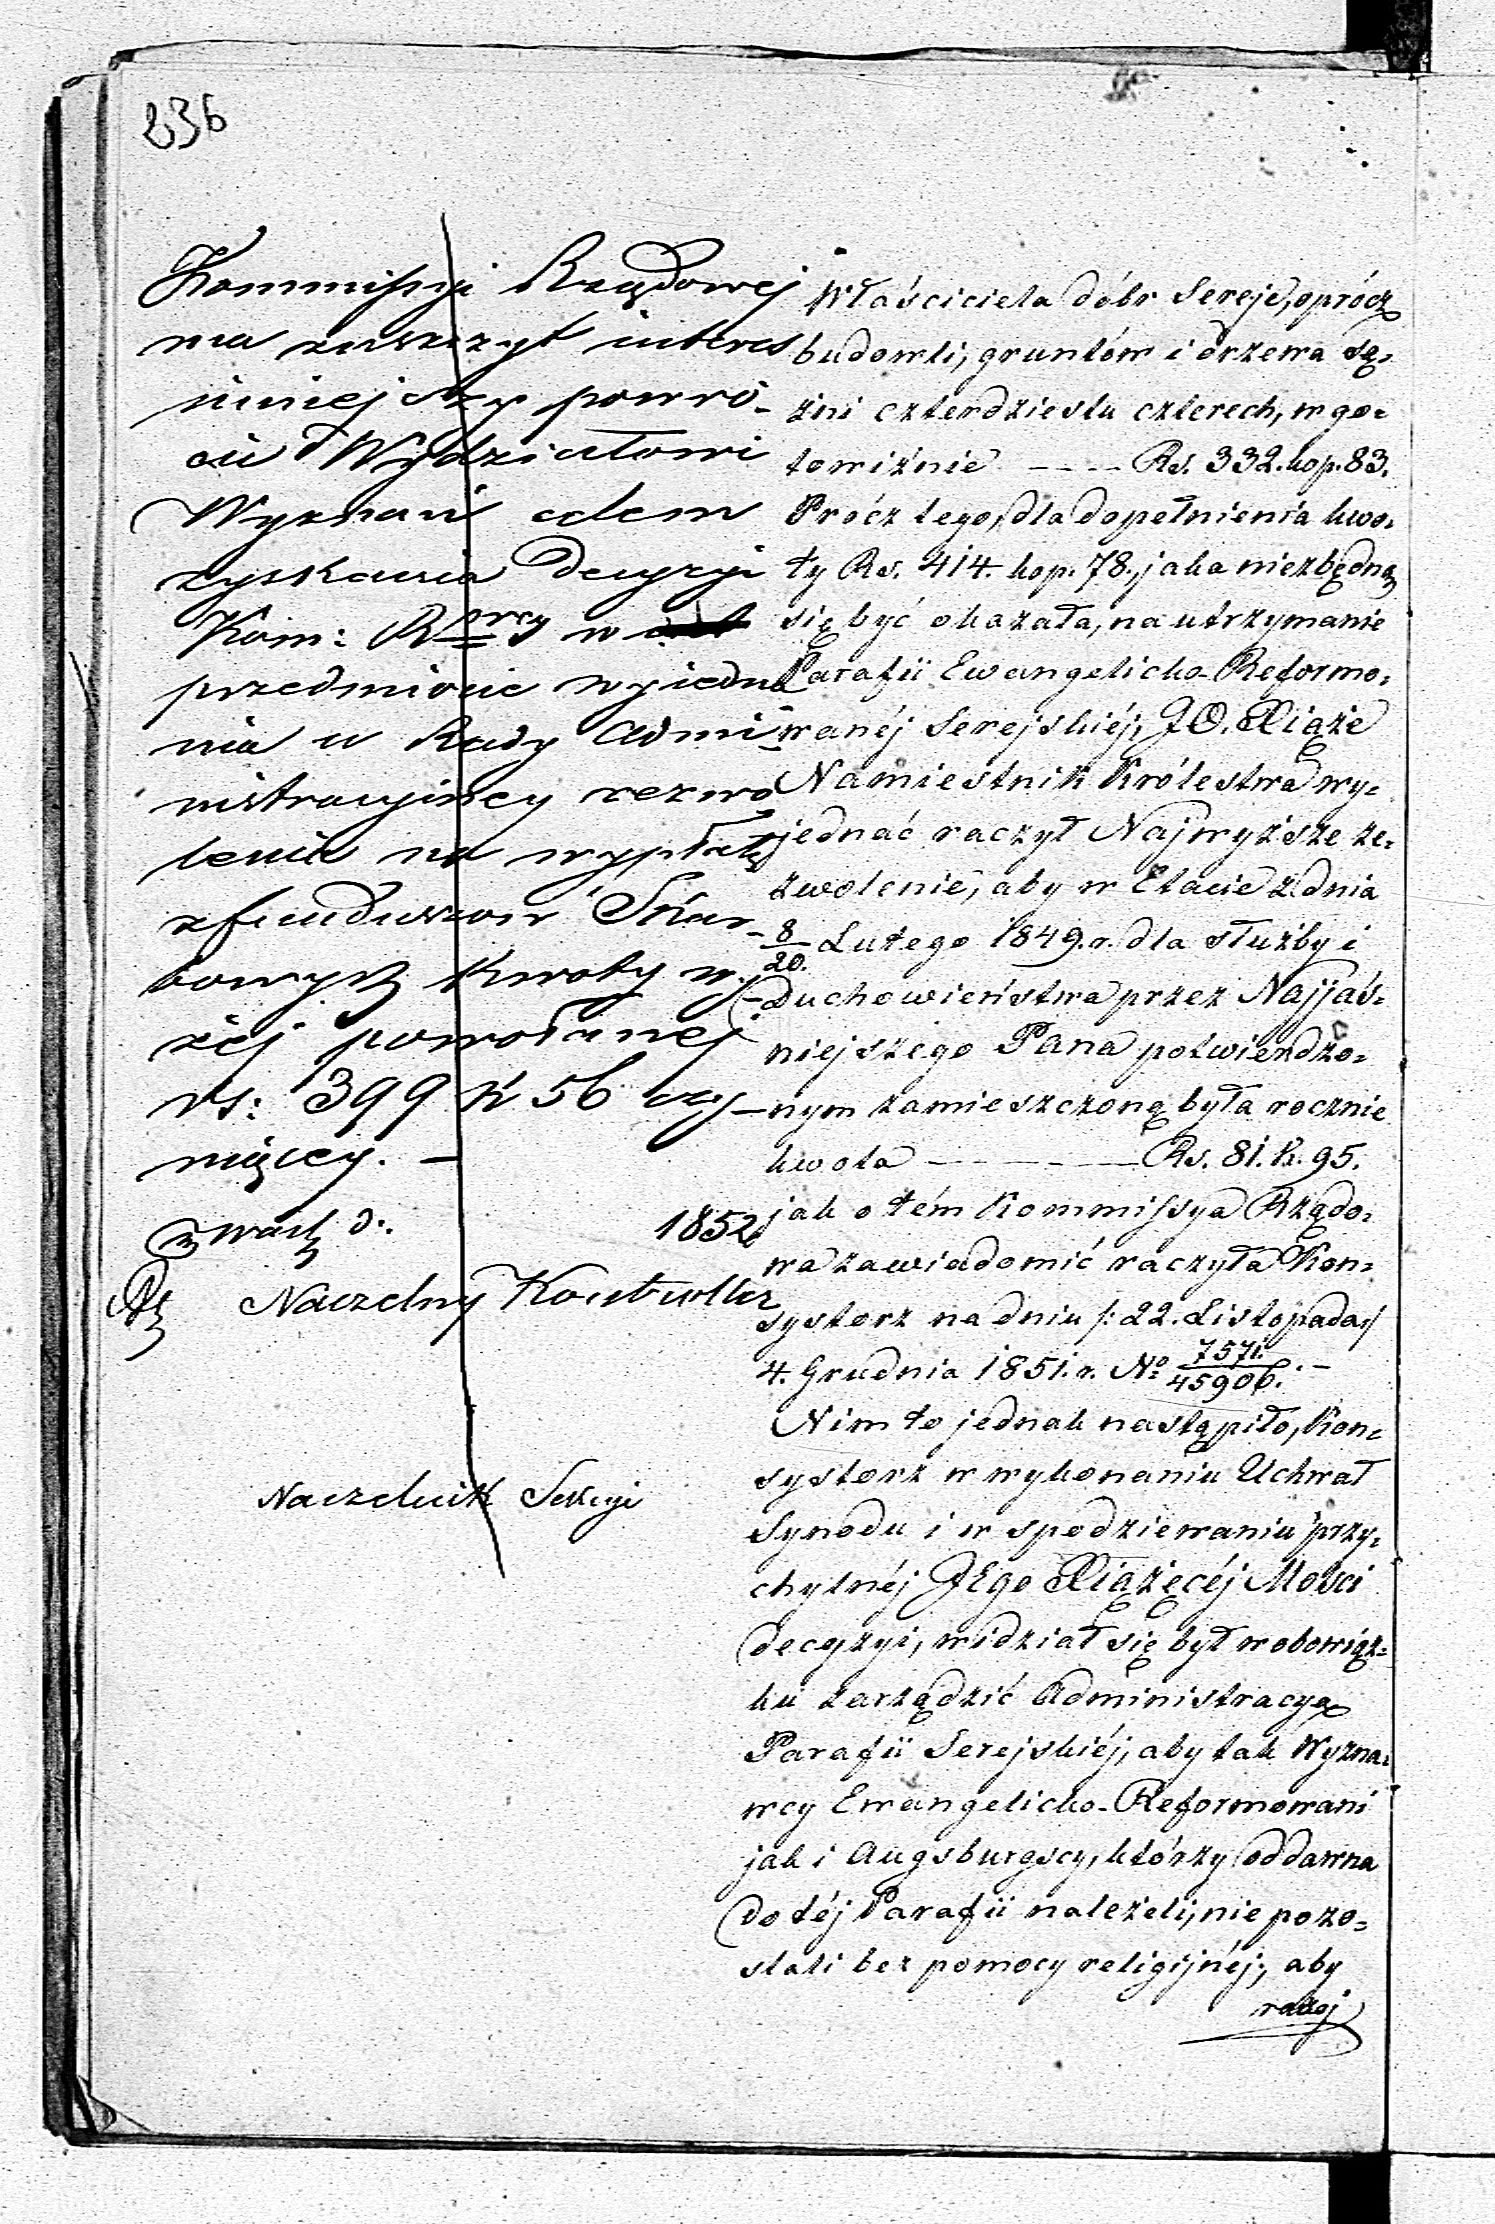 236
Kommissyi Rządowej
ma zaszczyt interes
niniejszy powró-
cić Wydziałowi
Wyznań celem
zyskania decyzyi
Kom: Rowej w
przedmiocie wyjedna
nia u Rady Admi-
nistracyjnej zezwo
lenia na wypłatę
z funduszów Skar-
bowych kwoty wy-
żej powołanej
rs: 399 k 56 wy-
nięcej. —
w Warsz d. 1852
Naczelny Kontroller
Naczelnik Sekcyi
Właściciela dóbr Sereje, oprócz
budowli, gruntów i drzewa są-
żni czterdziestu czterech, w go-
towiźnie ---- Rs. 332. kop. 83.
Prócz tego, dla dopełnienia kwo-
ty Rs. 414. kop. 78. jaka niezbędną
się być okazała, na utrzymanie
Parafii Ewangelicko-Reformo-
wanéj Serejskiéj, JO. Xiąże
Namiestnik Królestwa wy-
jednać raczył Najwyższe ze-
zwolenie, aby w Etacie z dnia
8/20. Lutego 1849. r. dla służby i
Duchowieństwa przez Najjaś-
niejszego Pana potwierdzo-
nym zamieszczoną była rocznie
kwota ------ Rs. 81. k. 95.
jak o tém Kommissya Rządo-
wa zawiadomić raczyła Kon-
systorz na dniu /: 22. Listopada/
4. Grudnia 1851. r. No 7571./45906. —
Nim to jednak nastąpiło, Kon-
systorz w wykonaniu Uchwał
Synodu i w spodziewaniu przy-
chylnéj JEgo Xiążęcéj Mości
decyzyi, widział się był w obowiąz-
ku zarządzić Administracyą
Parafii Serejskiéj, aby tak Wyzna-
wcy Ewangelicko-Reformowani
jak i Augsburgscy, którzy oddawna
do téj Parafii należeli, nie pozo-
stali bez pomocy religijnéj; aby